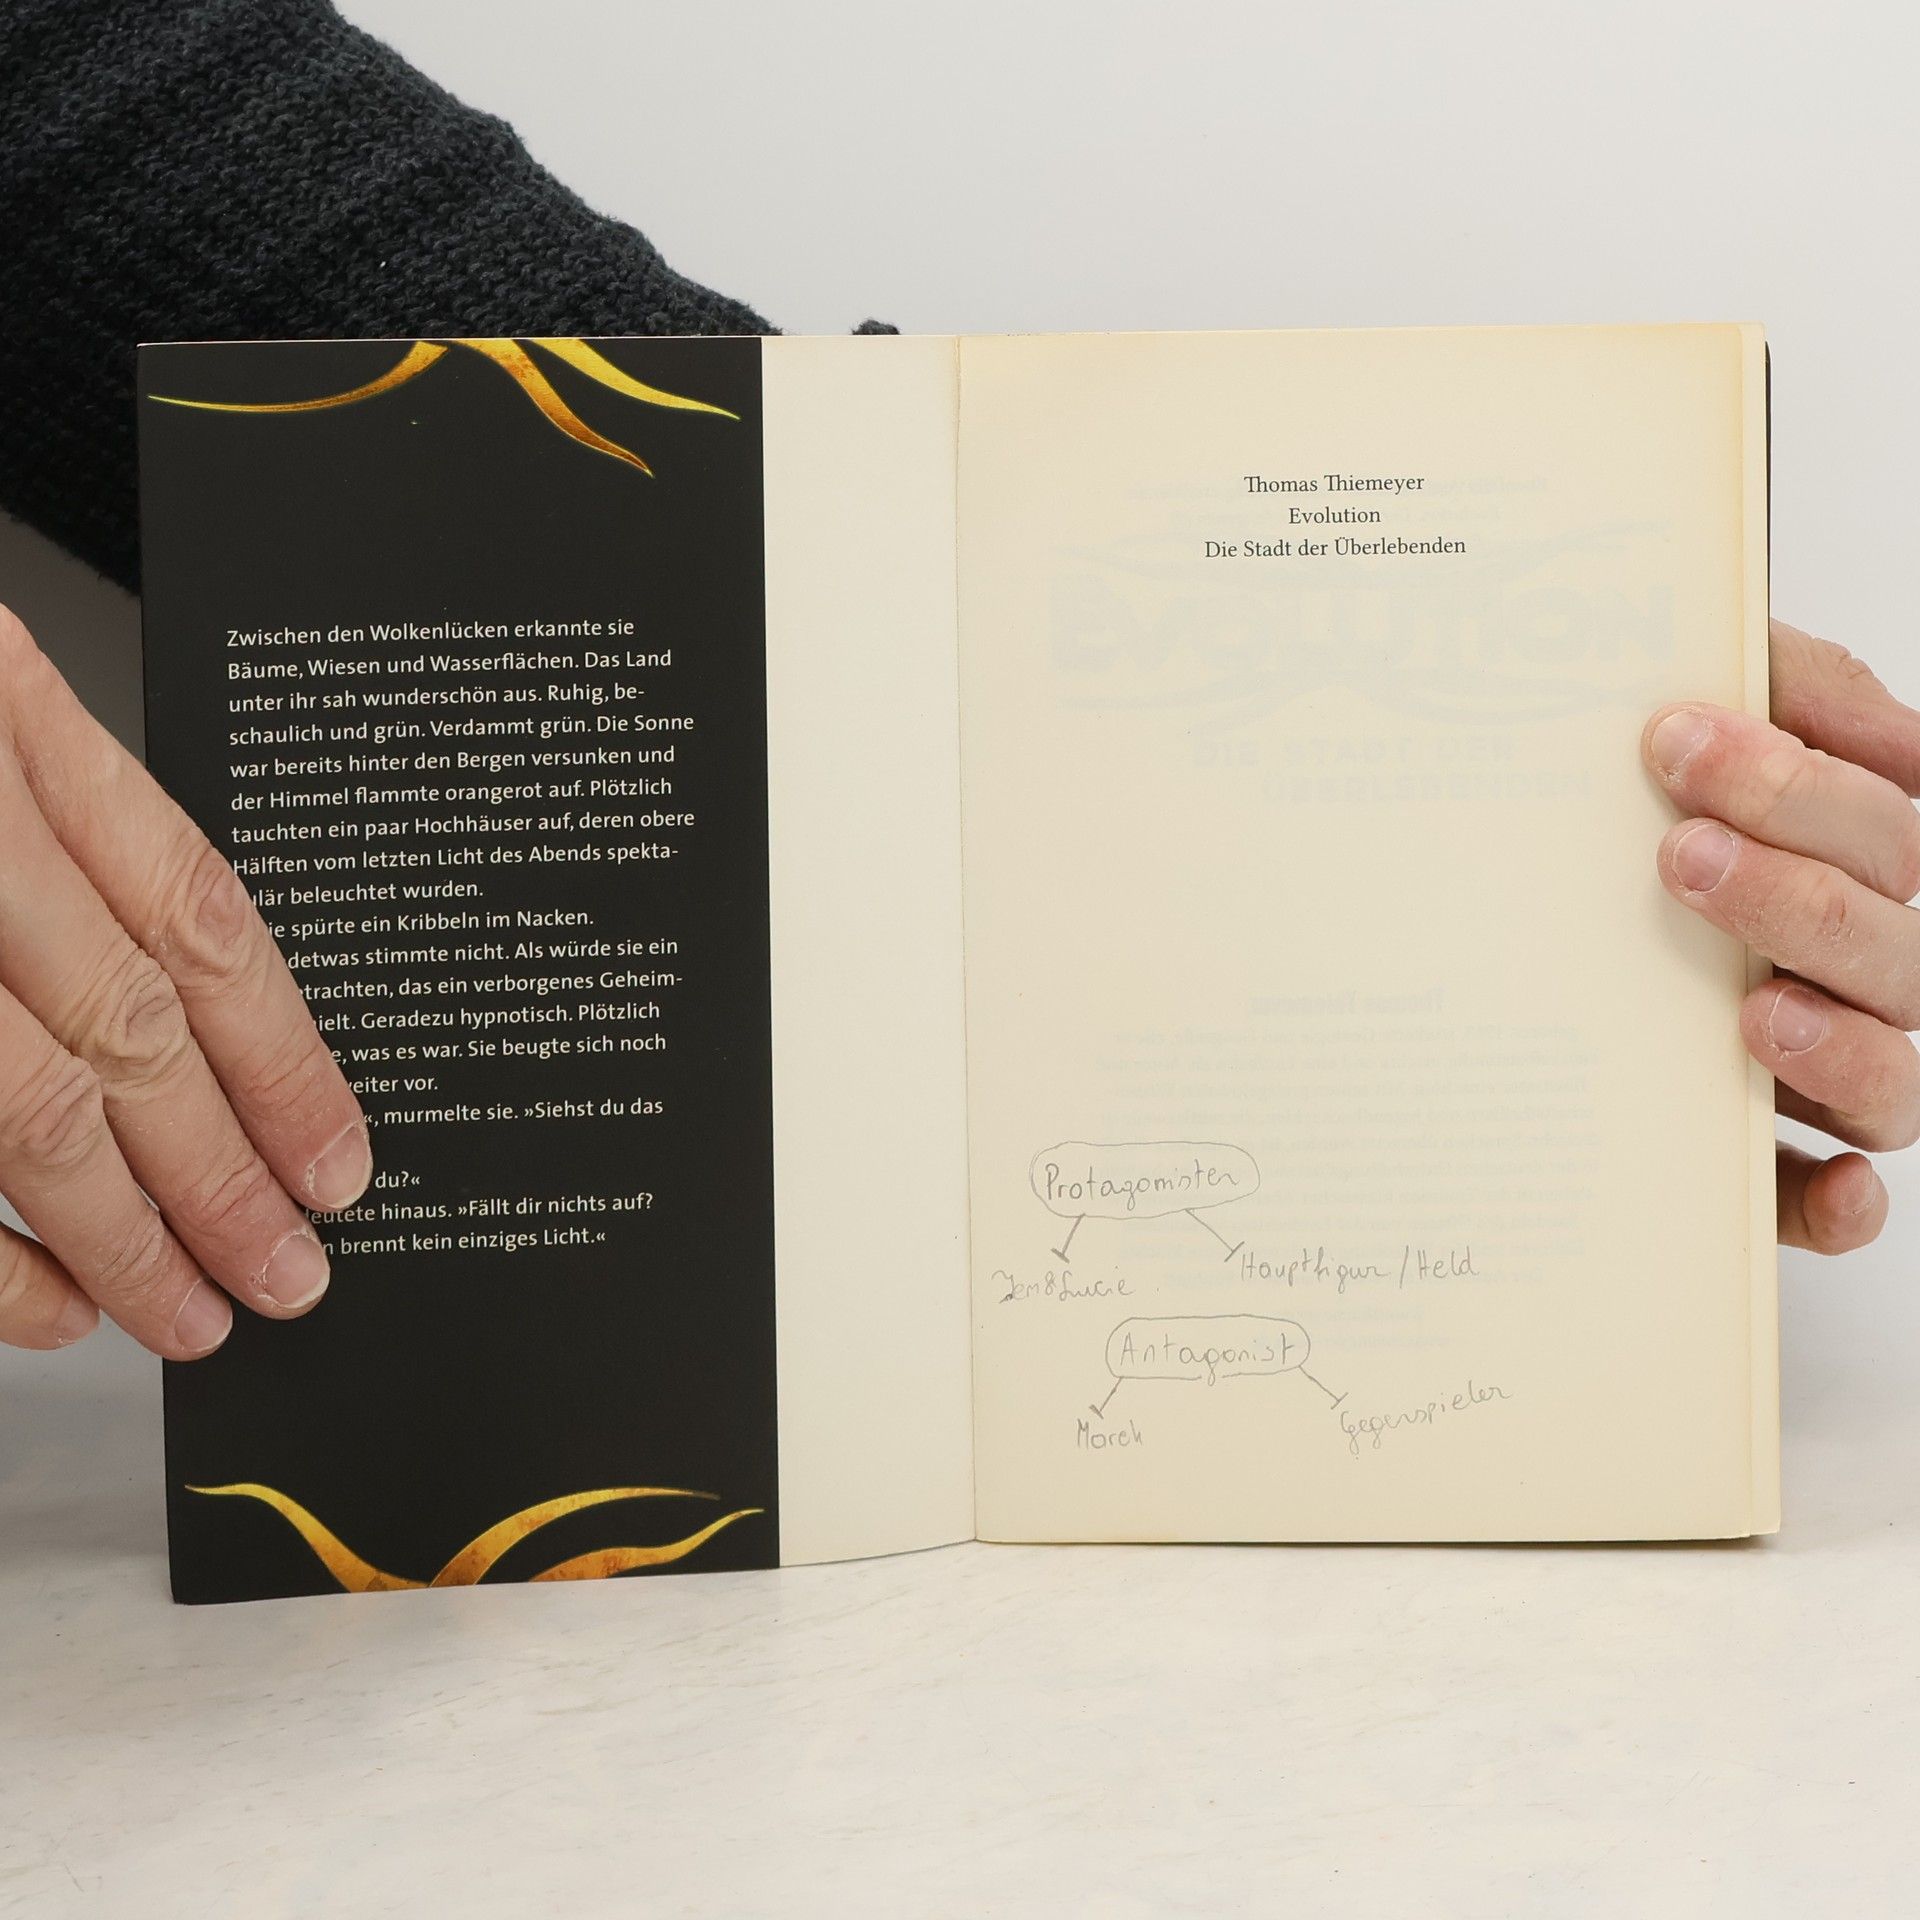 Zwischen den Wolkenlücken erkannte sie
Bäume, Wiesen und Wasserflächen. Das Land
unter ihr sah wunderschön aus. Ruhig, be-
schaulich und grün. Verdammt grün. Die Sonne
war bereits hinter den Bergen versunken und
der Himmel flammte orangerot auf. Plötzlich
tauchten ein paar Hochhäuser auf, deren obere
Hälften vom letzten Licht des Abends spekta-
lär beleuchtet wurden.
ie spürte ein Kribbeln im Nacken.
detwas stimmte nicht. Als würde sie ein
trachten, das ein verborgenes Geheim-
ielt. Geradezu hypnotisch. Plötzlich
e, was es war. Sie beugte sich noch
eiter vor.
«, murmelte sie. »Siehst du das
du?«
eutete hinaus. »Fällt dir nichts auf?
n brennt kein einziges Licht.«
Thomas Thiemeyer
Evolution
Die Stadt der Überlebenden
Protagonisten
Jem & Lucie
Hauptfigur / Held
Antagonist
Marek
Gegenspieler